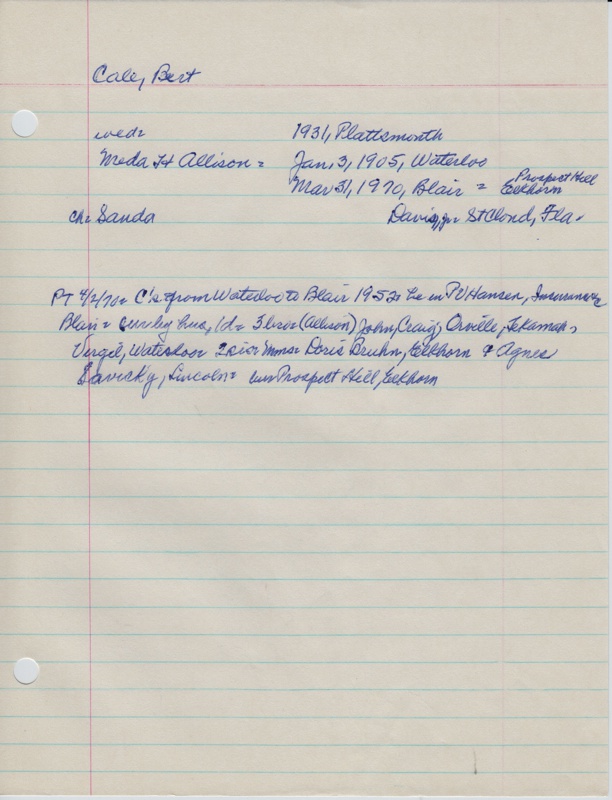 Cale, Bert
wed= 1931, Plattsmonth
Meda H Allison = Jan, 3, 1905, Waterloo
Mar 31, 1970, Blair = Prospect Hill Elkhorn
ch= Sanda Davis, jr= St Cloud, Fla-
PT 4/2/70= C's from Waterloo to Blair 1952= he in PV Hansen, Insurance,
Blair= surv by hus, 1d= 3 bros (Allison) John, Craig; Orville, Tekamah;
Vergil, Waterloo= 2 sis Mmes Doris Bruhn, Elkhorn & Agnes
Savisky, Lincoln= Prospect Hill, Elkhorn